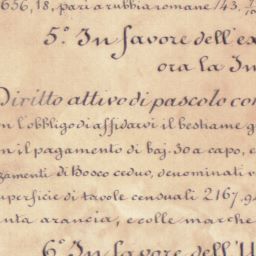 656,18, pari a rubbia romane 143.
5.° In favore dell'ex
ora la In
Diritto attivo di pascolo con
n l'obbligo di affidarvi il bestiame g
n il pagamento di baj. 30 a capo, e
zamenti di Bosco ceduo, denominati v
uperficie di tavole censuali 2167.94
nta arancia, e colle marche
6.° In favore dell'U